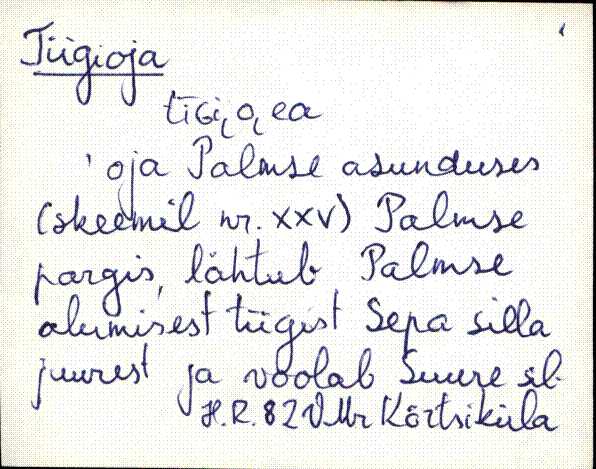 Tiigioja
oja Palmse asunduses
(skeemil nr. XXV) Palmse
pargis, lähtub Palmse
alumisest tiigist Sepa silla
juurest ja voolab Suure sil-
H.R. 82 VMr Kõrtsiküla